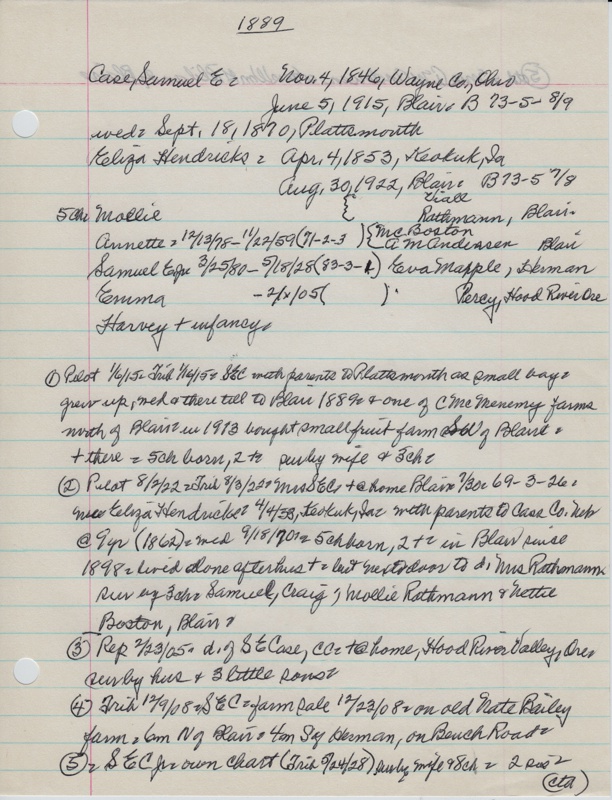 1889
Case, Samuel E = Nov. 4, 1846, Wayne Co, Ohio
June 5, 1915, Blair = B 73-5- 8/9
wed = Sept. 18, 1870, Plattsmouth
Eliza Hendricks = Apr. 4, 1853, Keokuk, Ia
Aug, 30, 1922, Blair = B 73-5 7/8
5 ch = Mollie { Viall
Rathmann, Blair =
Annette = 12/13/78 - 11/22/59 (71-2-3 ) { McBoston
A M Andersen Blair
Samuel E Jr = 3/25/80 - 5/18/28 (83-3-1) Eva Mapple, Herman
Emma -2/x/05 ( ) = Percy, Hood River Ore
Harvey + infancy =
① Pilot 1/6/15 = Trib 1/6/15 = SEC with parents to Plattsmouth as small boy =
grew up, wed & there till to Blair 1889 = & one of C McMenemy farms
north of Blair = in 1913 bought small fruit farm SW of Blair =
+ there = 5 ch born, 2 + = surv by wife & 3 ch =
② Pilot 8/2/22 = Trib 8/3/22 = Mrs SEC, + @ home Blair 7/30 = 69-3-26 =
nee Eliza Hendricks = 4/4/53, Keokuk, Ia = with parents to Cass Co. Neb
@ 9 yr (1862) = wed 9/18/70 = 5 ch born, 2 + = in Blair since
1898 = lived alone after hus + = but next door to d, Mrs Rathmann
surv by 3 ch = Samuel, Craig ; Mollie Rathmann & Nettie
Boston, Blair =
③ Rep 2/23/05 = d. of S E Case, CC = + @ home, Hood River Valley, Ore =
surv by hus & 3 little sons =
④ Trib 12/9/08 = SEC = farm sale 12/23/08 = on old Nate Bailey
farm = 6m N of Blair = 4m S of Herman, on Bench Road =
⑤ = S E C Jr = own chart (Trib 5/24/28) surv by wife & 8 ch = 2 sis =
(ctd)